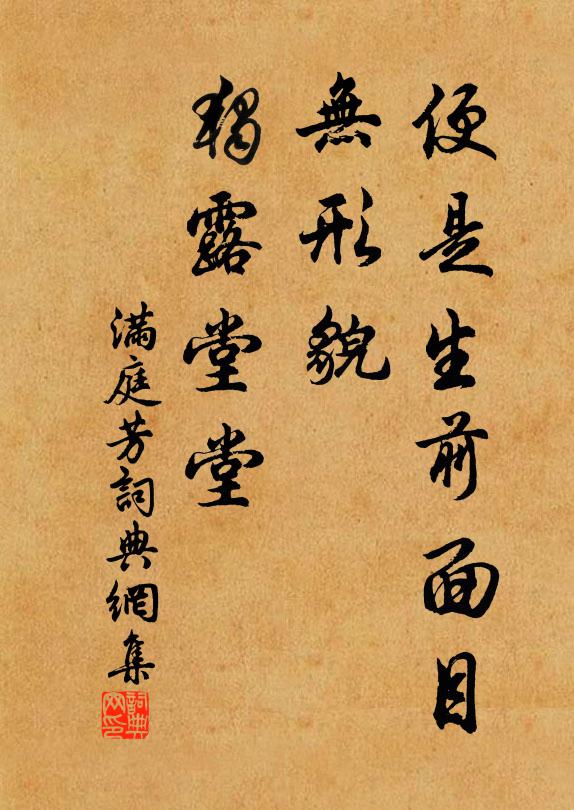 便是生前面目
無形貌
獨露堂堂
滿庭芳詞典網集
詞典網印